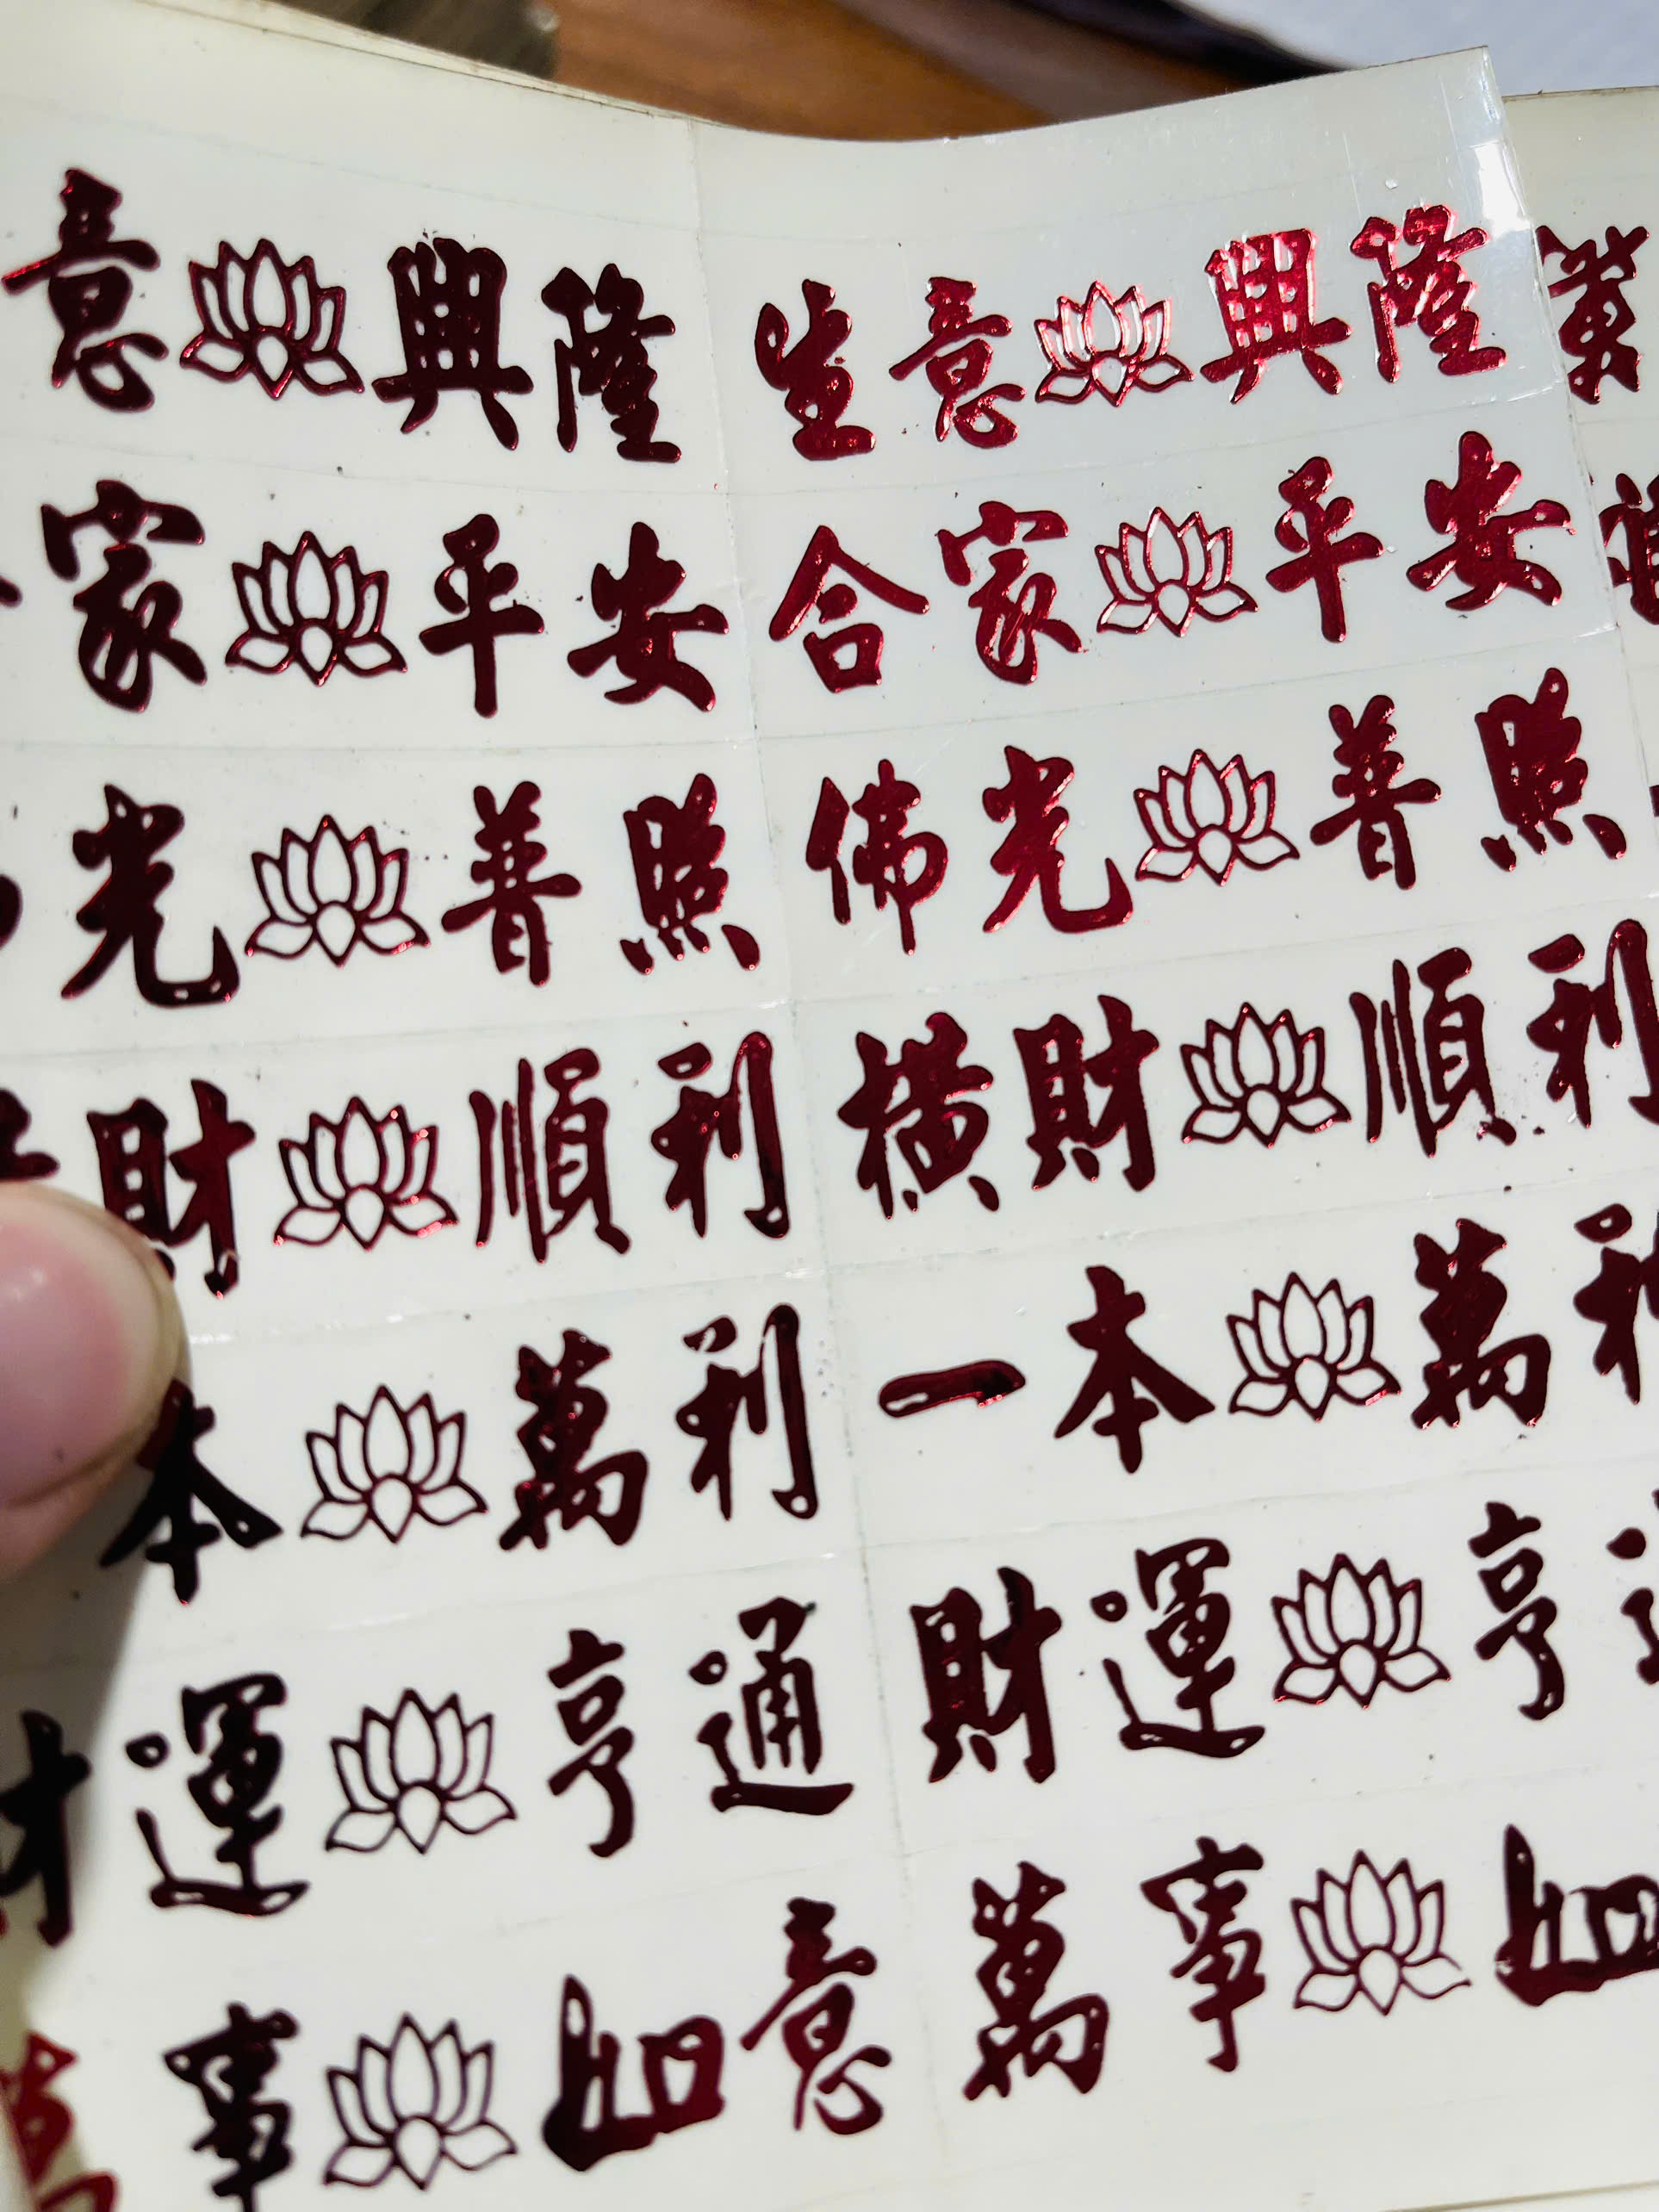 意 興隆 生意 興隆 萬
家 平安 合家 平安
光 普照 佛光 普照
財 順利 橫財 順利
本 萬利 一本 萬利
財運 亨通 財運 亨通
萬事 如意 萬事 如